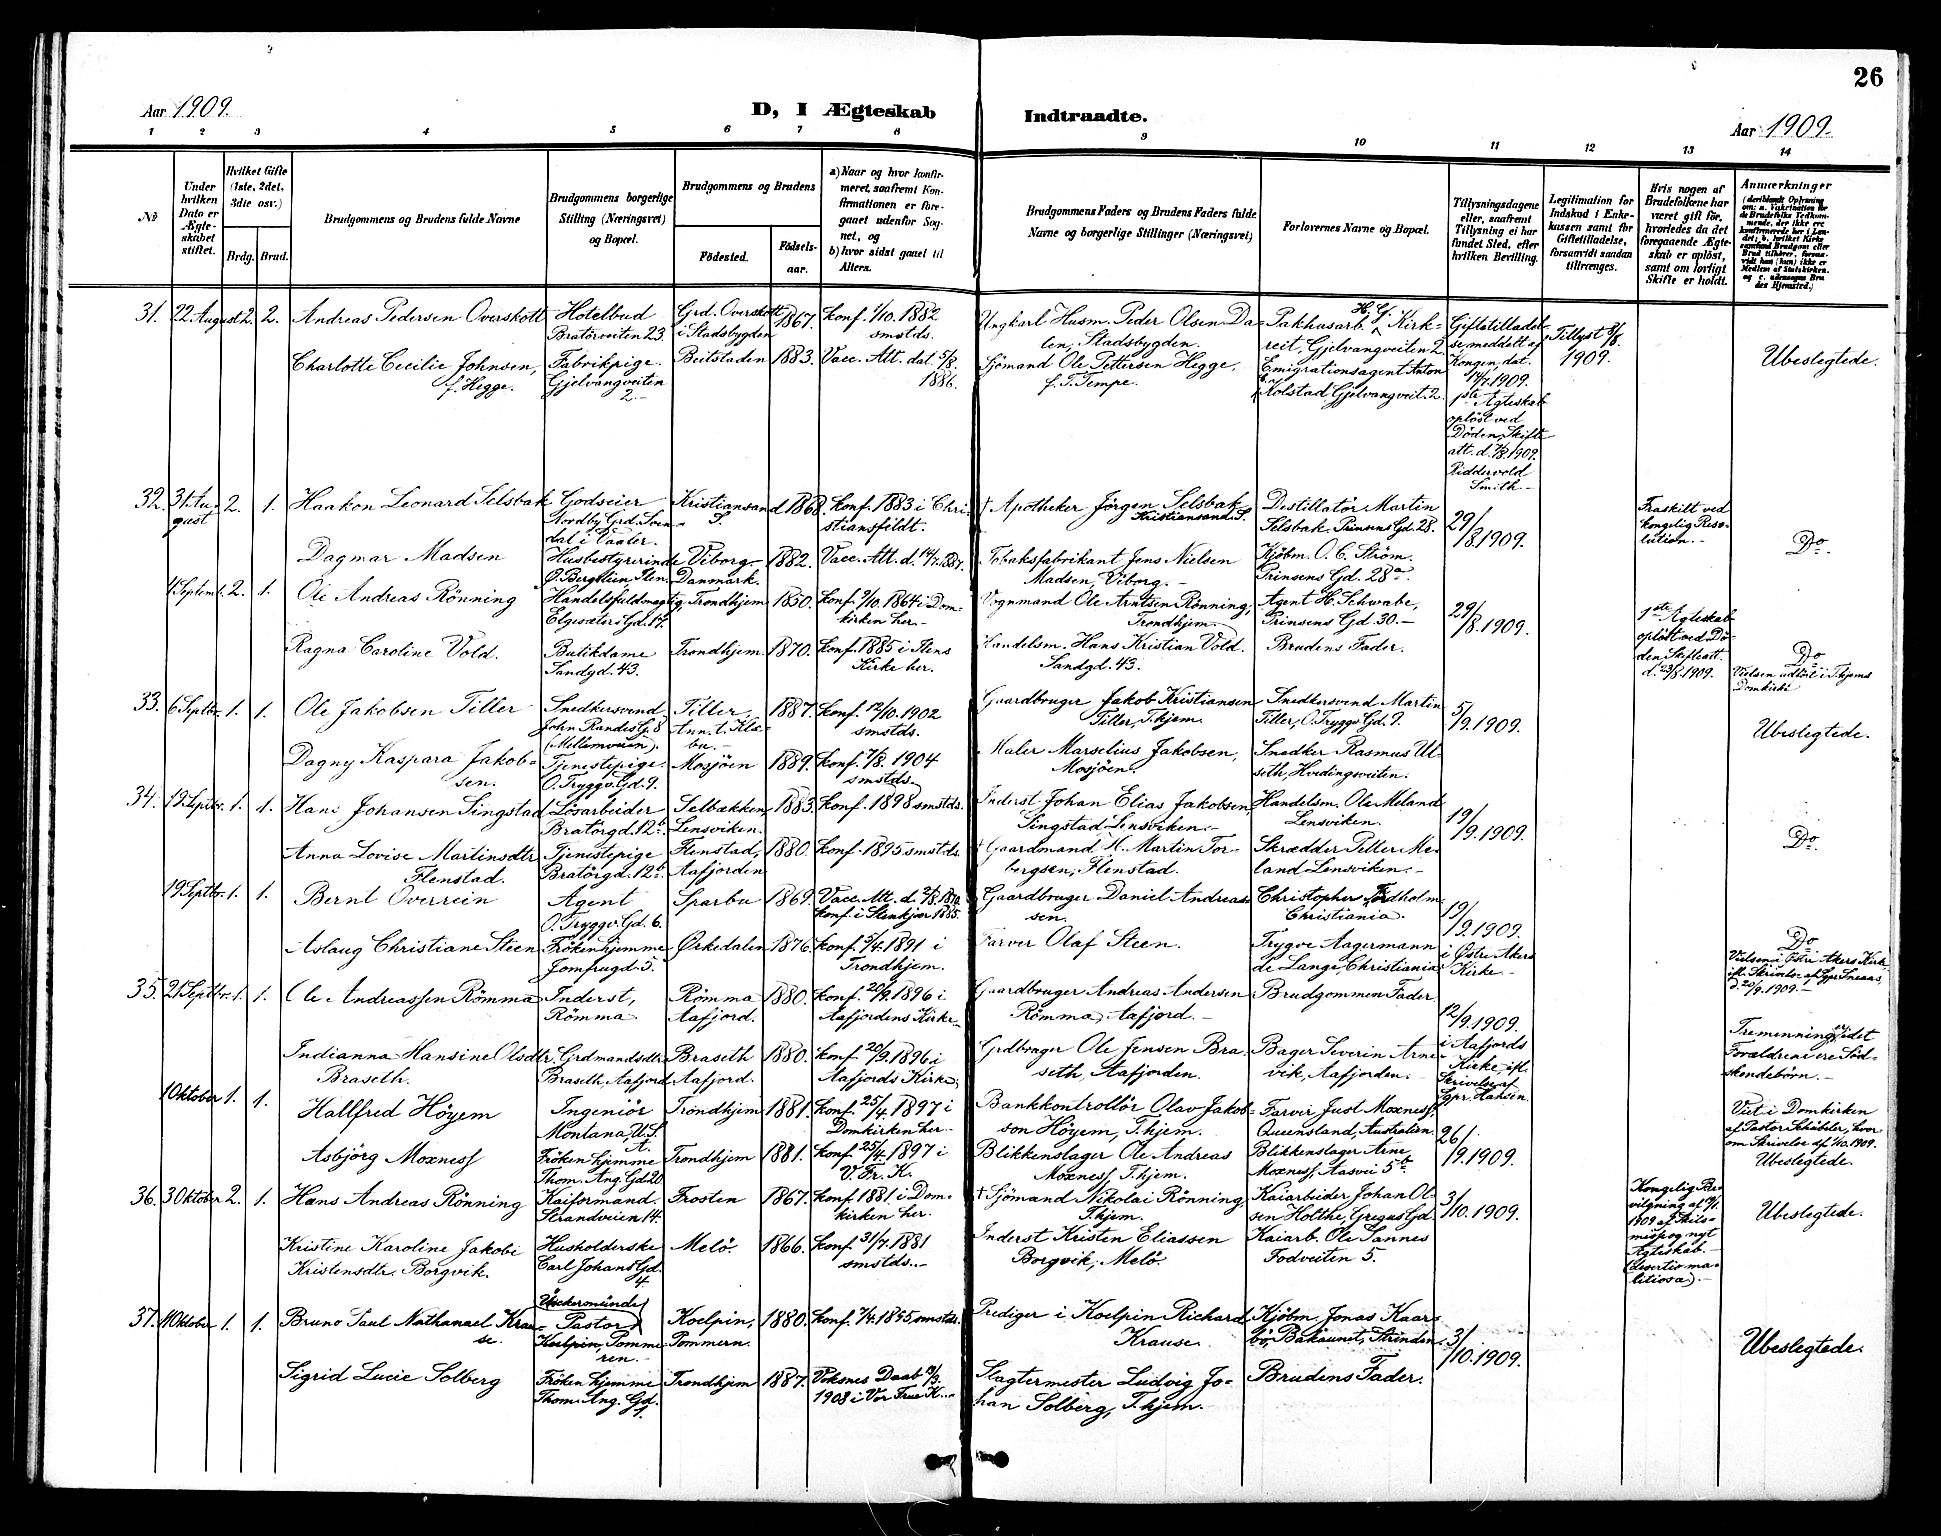 26
Aar 1909.
D, I Ægteskab Indtraadte.
Aar 1909.
1 2 3 4 5 6 7 8 9 10 11 12 13 14
No
Under hvilken Dato er Ægteskabet stiftet.
Hvilket Gifte (1ste, 2det, 3die osv.)
Brdg. Brud.
Brudgommens og Brudens fulde Navne
Brudgommens borgerlige Stilling (Næringsvei) og Bopæl.
Brudgommens og Brudens
Födested.
Födselsaar.
a) Naar og hvor konfirmeret, saafremt Konfirmationen er foregaaet udenfor Sognet, og
b) hvor sidst gaaet til Alters.
Brudgommens Faders og Brudens Faders fulde Navne og borgerlige Stillinger (Næringsvei)
Forlovernes Navne og Bopæl.
Tillysningsdagene eller, saafremt Tillysning ei har fundet Sted, efter hvilken Bevilling.
Legitimation for Indskud i Enkekassen samt for Giftetilladelse, forsaavidt saadan tiltrænges.
Hvis nogen af Brudefolkene har været gift før, hvorledes da det foregaaende Ægteskab er opløst, samt om lovligt Skifte er holdt.
Anmærkninger
31. 22 August 2. 2. Andreas Pedersen Overskott
Hotelbud
Bratörveiten 23.
Grd. Overskott
i Stadsbygden
1867. konf. 1/10. 1882
smstds.
Ungkarl Husm. Peder Olsen Dalen, Stadsbygden.
Pakhusarb. H. G. Kirkreit, Gjelvangveiten 2
Giftetilladelse meddelt af Kongen, dat. 14/7.1909.
1ste Ægteskab oplöst ved Döden, Skifteatt. d. 7/8.1909.
Riddervold Smith.
Tillyst 8/8. 1909.
Charlotte Cecilie Johnsen,
f. Hegge.
Fabrikpige.
Gjelvangveiten
2.
Beitstaden 1883. Vacc. Att. dat 5/8.
1886.
Sjömand Ole Pettersen Hegge,
f. T. Tempe.
Emigrationsagent Anton
E. Kolstad Gjelvangveit. 2.
Ubeslegtede.
32. 31. August 2. 1. Haakon Leonard Selsbak
Godseier
Nordby Grd. Svendal i Vaaler.
Kristiansand S. 1868. konf. 1883 i Christiansfeldt.
† Apotheker Jörgen Selsbak
Kristiansand S.
Destillatör Martin
Selsbak. Prinsens Gd. 28.
29/8.1909.
Fraskilt ved kongelig Resolution.
Do.
Dagmar Madsen
Husbestyrerinde
Viborg Danmark. 1882. Vacc. Att. d. 14/7.1887.
Tobaksfabrikant Jens Nielsen
Madsen, Viborg.
Kjöbm. O. C. Ström.
Prinsens Gd. 28a.
4 Septemb. 2. 1. Ole Andreas Rönning
Handelsfuldmægtig
Elgesæters Gd. 17.
Trondhjem 1850. konf. 9/10. 1864 i Domkirken her.
Vognmand Ole Arntsen Rönning,
Trondhjem.
Agent H. Schwabe,
Prinsens Gd. 30.
29/8.1909.
1ste Ægteskab oplöst ved Döden Skifteatt. d. 23/8.1909.
Do
Vielsen udført i T.hjems
Domkirke
Ragna Caroline Vold.
Butikdame
Sandgd. 43.
Trondhjem 1870. konf. 1885 i Ilens
Kirke her.
Handelsm. Hans Kristian Vold.
Sandgd. 43.
Brudens Fader.
33. 6 Septbr. 1. 1. Ole Jakobsen Tiller
Snedkersvend
John Randes G. 8
(Mellemveien).
Tiller,
Ann. t. Klæbu.
1887. konf. 12/10. 1902
smstds.
Gaardbruger Jakob Kristiansen
Tiller, T.hjem.
Snedkersvend Martin
Tiller, O. Tryggv. Gd. 9.
5/9.1909.
Ubeslegtede.
Dagny Kaspara Jakobsen.
Tjenestepige.
O. Tryggv. Gd. 9.
Mosjöen 1889. konf. 7/8. 1904
smstds.
Maler Marselius Jakobsen,
Mosjöen.
Snedker Rasmus Ulseth, Hvedingsveiten.
34. 19 Septbr. 1. 1. Hans Johansen Singstad
Lösarbeider
Bratörgd. 12b.
Selbækken,
Lensviken.
1883. konf. 1898 smstds.
Inderst Johan Elias Jakobsen,
Singstad Lensviken.
Handelsm. Ole Meland
Lensviken.
19/9.1909.
Do.
Anna Lovise Martinsdtr
Flenstad.
Tjenestepige
Bratörgd. 12b.
Flenstad,
Aafjorden
1880. konf. 1895 smstds.
† Gaardmand H. Martin Torbergsen, Flenstad.
Skrædder Petter Meland Lensviken.
19 Septbr. 1. 1. Bernt Overrein
Agent
O. Tryggv. Gd. 6.
Sparbu 1869. Vacc. Att. d. 21/8. 1870.
konf. i Stenkjær 1885.
Gaardbruger Daniel Andreassen.
Christopher Fredholm
Christiania.
19/9.1909.
i Østre Akers
Kirke
Do
Vielsen i Østre Akers Kirke
ifl. Skrivelse af Spr. Sneaas,
d. 20/9.1909.
Aslaug Christiane Steen
Fröken hjemme
Jomfrugd. 5.
Ørkedalen 1876. konf. 5/4. 1891 i
Trondhjem.
Farver Olaf Steen.
Trygve Aagermann
de Lange, Christiania
35. 21 Septbr. 1. 1. Ole Andreassen Römma
Inderst,
Römma
Römma
Aafjord.
1880. konf. 20/9. 1896 i
Aafjordens Kirke
Gaardbruger Andreas Andersen
Römma, Aafjord.
Brudgommen Fader
12/9.1909.
i Aafjords
Kirke, ifl.
Skrivelse af
Spr. Hansen.
Tremenninger, idet
Forældrene ere Södskendebörn.
Indianna Hansine Olsdtr.
Braseth.
Grdmandsdtr.
Braseth Aafjord
Braseth
Aafjord.
1880. konf. 20/9. 1896 i
Aafjords Kirke,
Grdbruger Ole Jensen Braseth, Aafjorden.
Bager Severin Arnevik, Aafjorden.
1 Oktober 1. 1. Hallfred Höyem
Ingeniör
Montana, U. S. A.
Trondhjem 1881. konf. 25/4. 1897 i
Domkirken her.
Bankkontrollör Olav Jakobson Höyem, T.hjem.
Farver Just Moxness,
Queensland, Australien.
26/9.1909.
Viet i Domkirken
af Pastor Schübeler, hvorom Skrivelse af 1/10.1909.
Ubeslegtede.
Asbjörg Moxness
Fröken hjemme
Thom. Ang. Gd. 20
Trondhjem 1881. konf. 25/4. 1897 i
V. Fr. K.
Blikkenslager Ole Andreas
Moxness, T.hjem.
Blikkenslager Arne
Moxness, Aasvei 5b.
36. 3 Oktober 2. 1. Hans Andreas Rönning
Kaiformand
Strandveien 14.
Frosten 1867. konf. 1881. i Domkirken her.
† Sjömand Nikolai Rönning,
T.hjem.
Kaiarbeider Johan Olsen Holthe, Gregus Gd.
3/10.1909.
Kongelig Bevilgning af
1909 af Skilsmisse og nyt
Ægteskab.
(desertio malitiosa).
Ubeslegtede.
Kristine Karoline Jakobi
Kristensdtr. Borgvik.
Husholderske
Carl Johans Gd.
4.
Melö. 1866. konf. 31/7. 1881
smstds.
Inderst Kristen Eliassen
Borgvik, Melö.
Kaiarb. Ole Sannes
Fodveiten 5.
37. 11 Oktober 1. 1. Bruno Paul Nathanael Krause.
Ückermünde
Pastor,
Koelpin, Pommeren.
Koelpin,
Pommern.
1880. konf. 7/4. 1855 smstds.
Prediger i Koelpin Richard
Krause
Kjöbm. Jonas Kaarbö, Bakaunet, Strinden.
3/10.1909.
Ubeslegtede.
Sigrid Lucie Solberg
Fröken hjemme
Thom. Ang. Gd.
1.
Trondhjem 1887. Voksnes Daab 12/3.
1908 i Vor Frue K.
Slagtermester Ludvig Johan Solberg, T.hjem.
Brudens Fader.